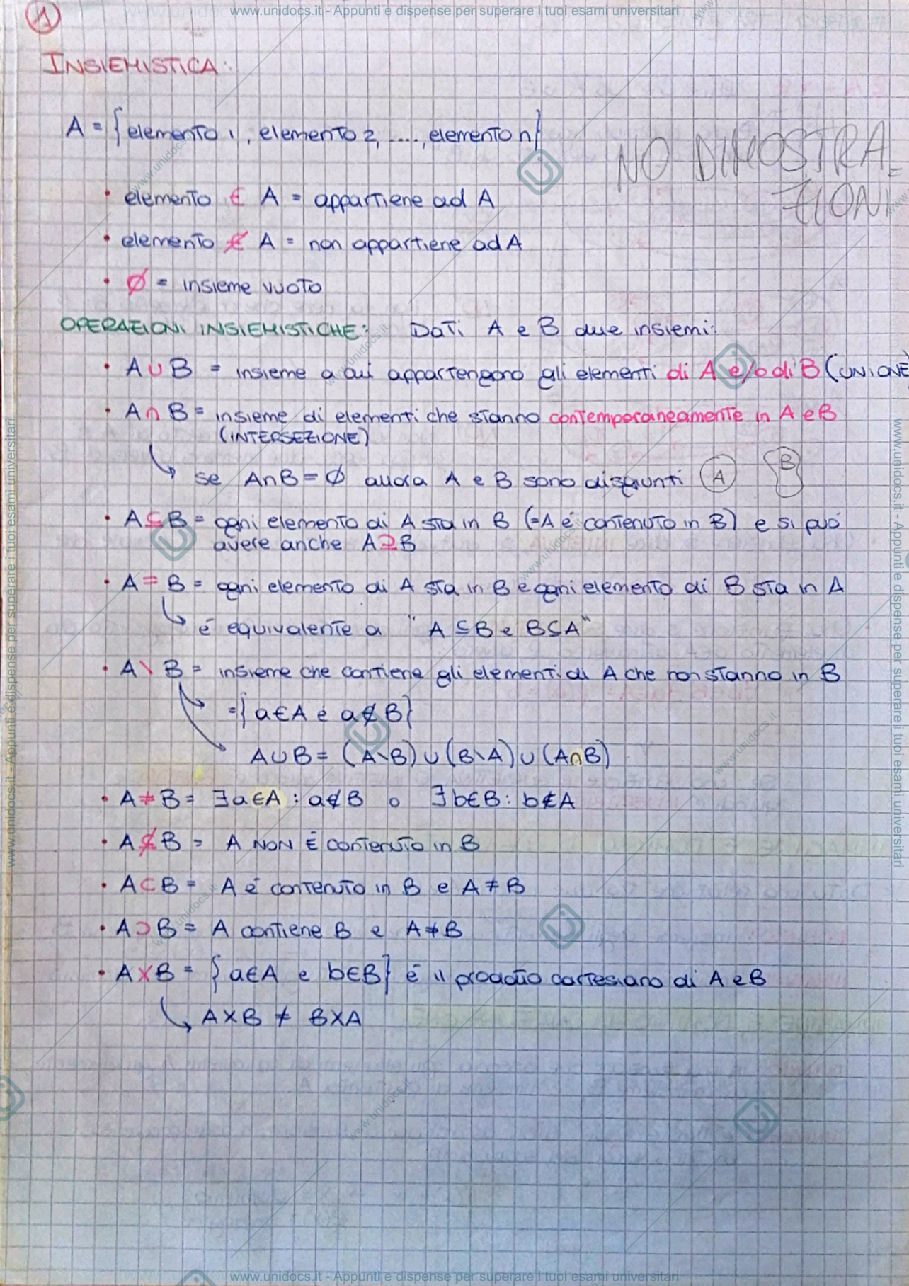 www.unidocs.it - Appunti e dispense per superare i tuoi esami universitari
1
INSIEMISTICA:
A = {elemento 1, elemento 2, ...., elemento n}
NO DIMOSTRA-
ZIONI
• elemento ∈ A = appartiene ad A
• elemento ∉ A = non appartiene ad A
• ∅ = insieme vuoto
OPERAZIONI INSIEMISTICHE: Dati A e B due insiemi:
• A ∪ B = insieme a cui appartengono gli elementi di A e/o di B (UNIONE)
• A ∩ B = insieme di elementi che stanno contemporaneamente in A e B
(INTERSEZIONE)
↳ se A∩B = ∅ allora A e B sono disgiunti A B
• A ⊆ B = ogni elemento di A sta in B (=A é contenuto in B) e si può
avere anche A ⊇ B
• A = B = ogni elemento di A sta in B e ogni elemento di B sta in A
↳ é equivalente a "A ⊆ B e B ⊆ A"
• A \ B = insieme che contiene gli elementi di A che non stanno in B
↳ = {a∈A e a∉B}
↳ A∪B = (A\B) ∪ (B\A) ∪ (A∩B)
• A ≠ B = ∃a∈A : a∉B o ∃b∈B : b∉A
• A ⊈ B = A NON É contenuto in B
• A ⊂ B = A é contenuto in B e A ≠ B
• A ⊃ B = A contiene B e A ≠ B
• A × B = {a∈A e b∈B} é il prodotto cartesiano di A e B
↳ A×B ≠ B×A
www.unidocs.it - Appunti e dispense per superare i tuoi esami universitari
www.unidocs.it - Appunti e dispense per superare i tuoi esami universitari
www.unidocs.it - Appunti e dispense per superare i tuoi esami universitari